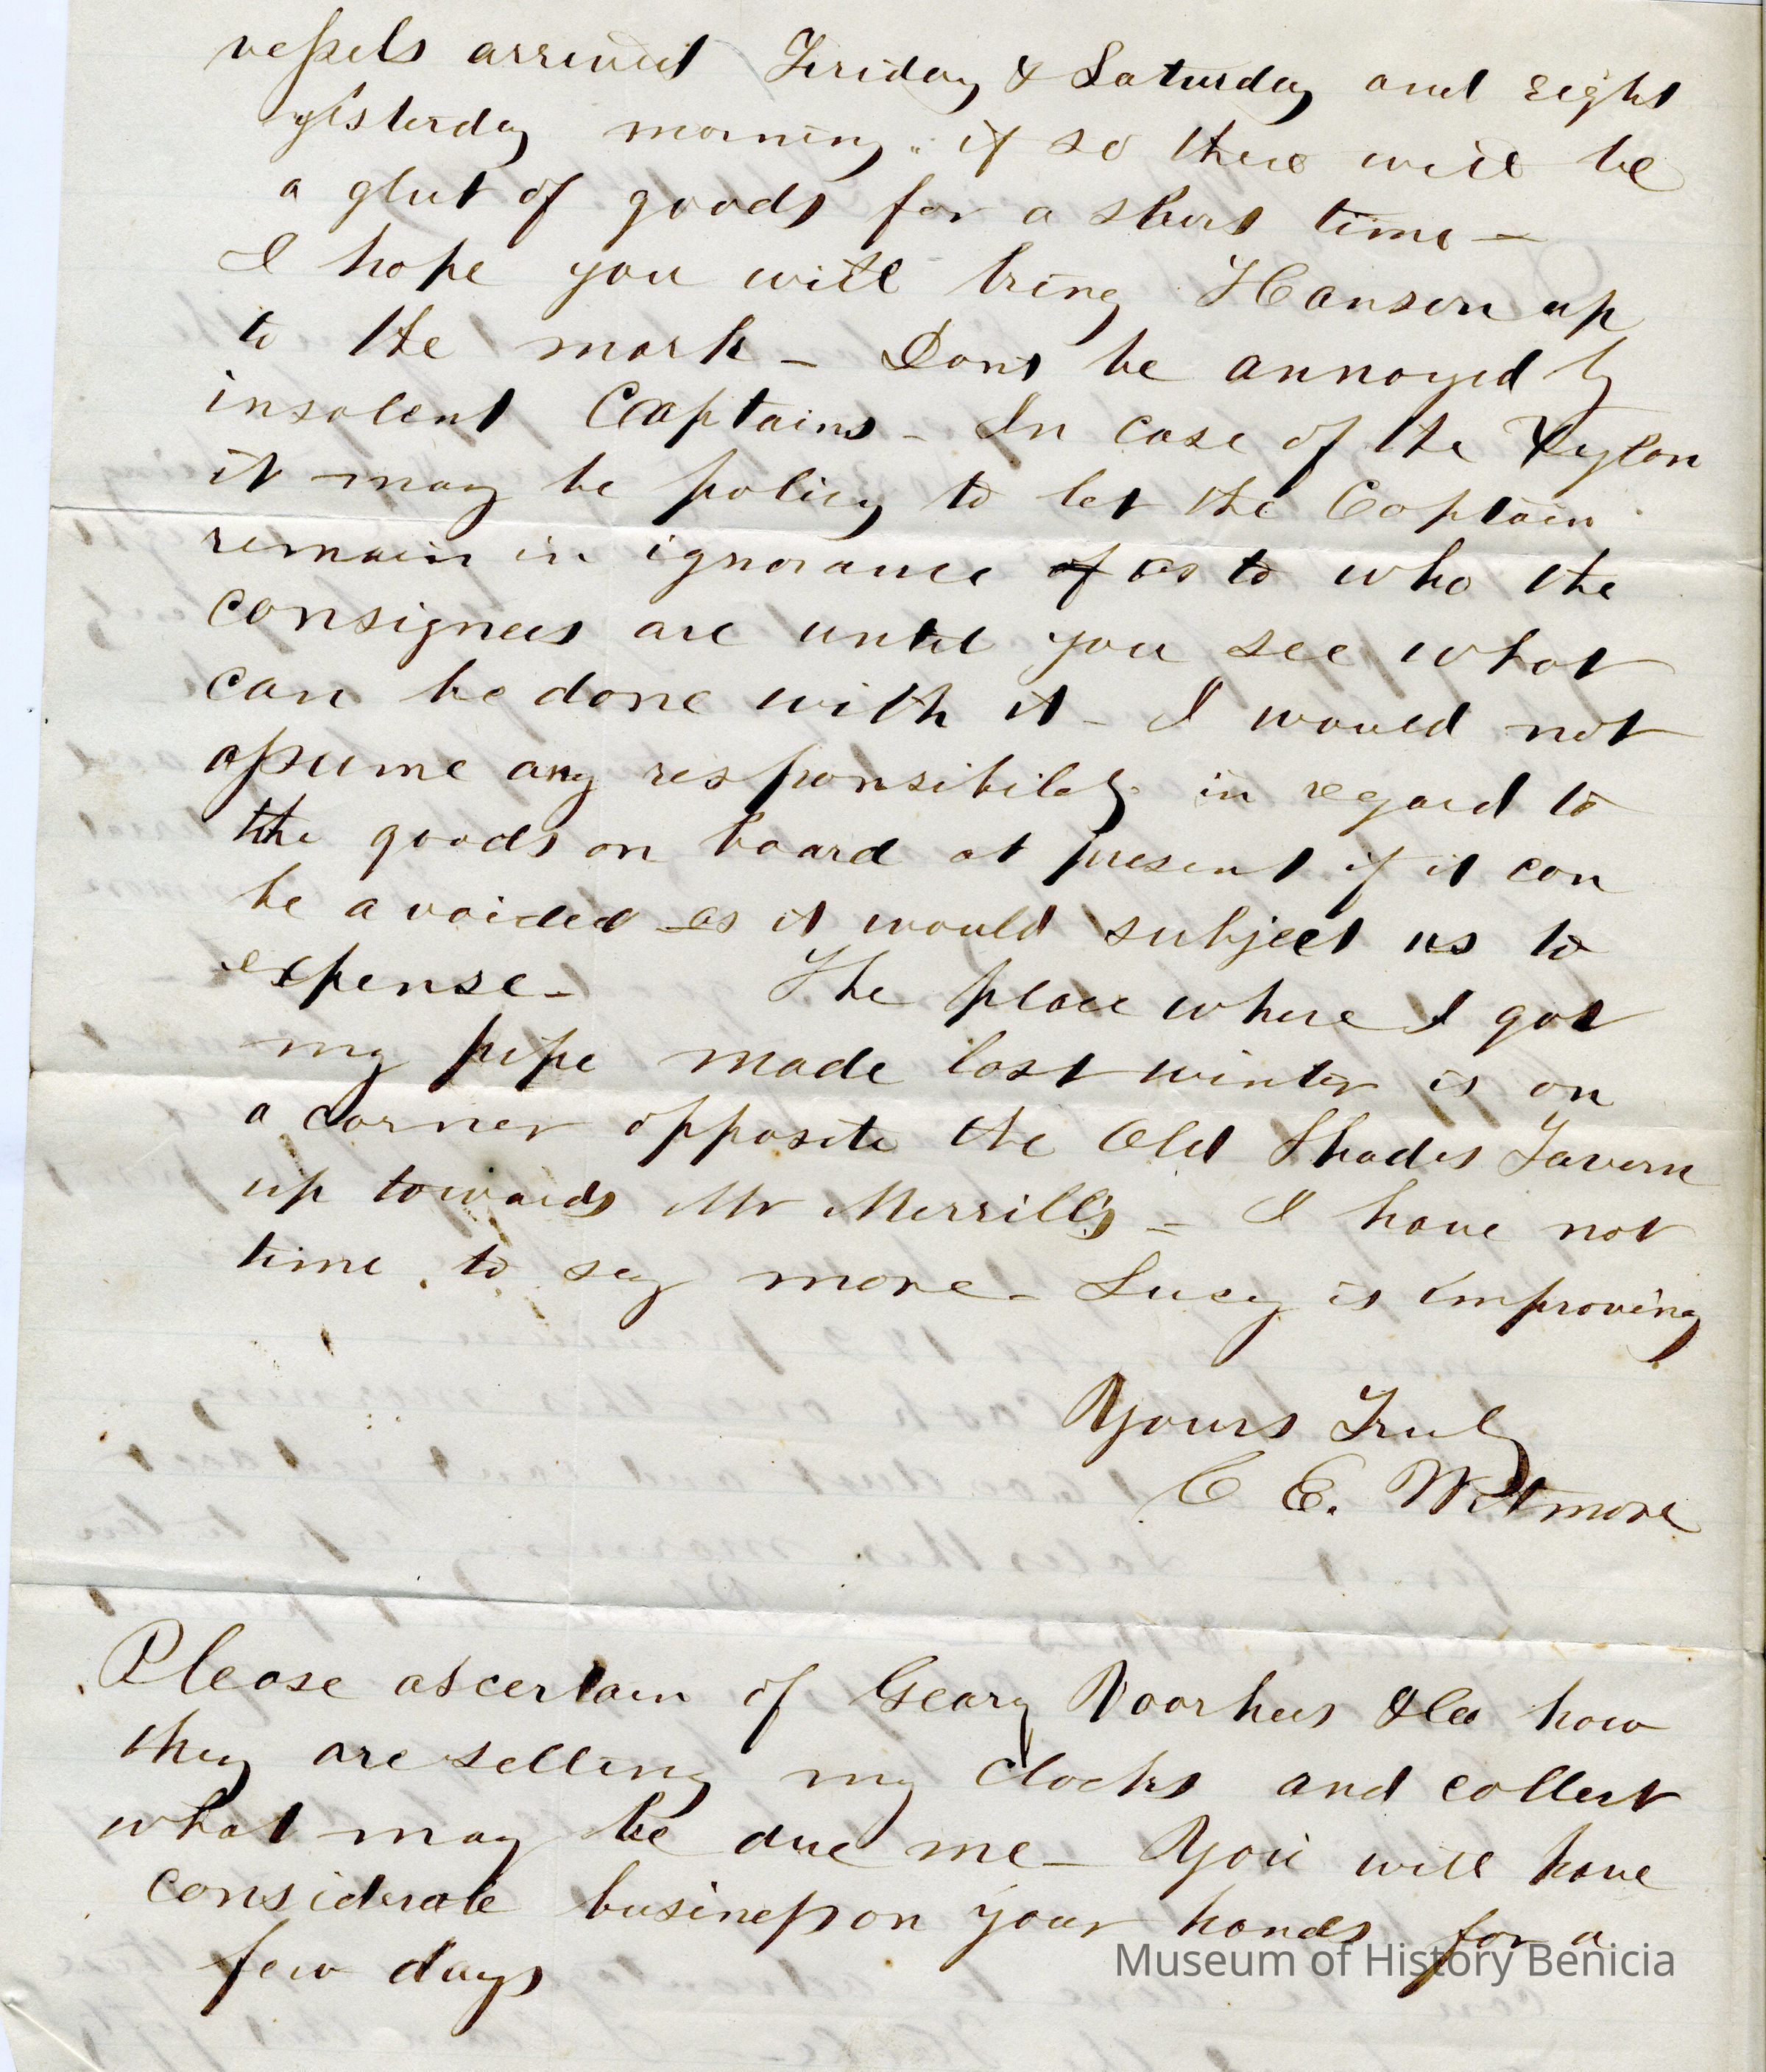 vessels arrived Friday & Saturday and eight
yesterday morning. if so there will be
a glut of goods for a short time —
I hope you will bring Hanson up
to the mark — Dont be annoyed by
insolent Captains — In case of the Xylon
it may be policy to let the Captain
remain in ignorance of as to who the
consignees are until you see what
can be done with it — I would not
assume any responsibility in regard to
the goods on board at present if it can
be avoided as it would subject us to
expense — The place where I got
my pipe made last winter is on
a corner opposite the Old Shades Tavern
up towards Mr Merrill's — I have not
time to say more — Lucy is improving
Yours Truly
C E. Wetmore
Please ascertain of Geary Voorhees & Co how
they are selling my clocks and collect
what may be due me — You will have
considerable business on your hands for a
few days
Museum of History Benicia